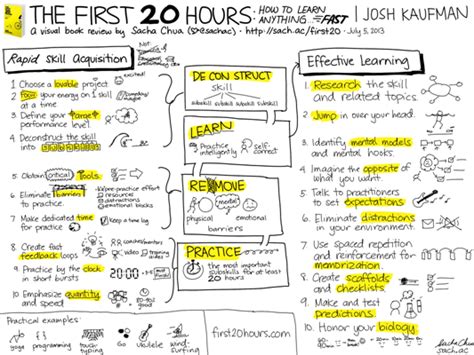 THE FIRST 20 HOURS: HOW TO LEARN ANYTHING FAST | JOSH KAUFMAN
a visual book review by Sacha Chua (@sachac) • http://sach.ac/first20 • July 5, 2013
Rapid Skill Acquisition
1. Choose a lovable project
excited!
2. Focus your energy on 1 skill
at a time
3. Define your target
performance level
4. Deconstruct the skill
into
5. Obtain critical tools
6. Eliminate barriers
to practice
7. Make dedicated time
for practice
Keep a time log
8. Create fast
feedback loops
coaches/mentors
video
9. Practice by the clock
in short bursts
20:00
10. Emphasize quantity
and speed
DECONSTRUCT
skill
subskill subskill subskill subskill
LEARN
Practice
intelligently
self-
correct
REMOVE
physical
emotional
barriers
PRACTICE
the most important
subskills for at least
20 hours
Effective Learning
1. Research the skill
and related topics.
2. Jump in over your head.
3. Identify mental models
and mental hooks.
4. Imagine the opposite of
what you want.
5. Talk to practitioners
to set expectations
6. Eliminate distractions
in your environment.
7. Use spaced repetition
and reinforcement for
memorization.
8. Create scaffolds
and checklists
9. Make and test
predictions.
10. Honor your biology.
Practical examples:
yoga
programming
touch
typing
Go
Ukulele
wind-
surfing
first20hours.com
Sacha Chua
sach.ac